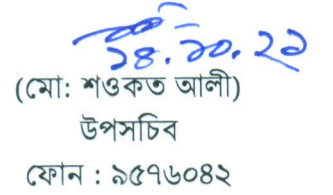 ১৪.১০.২১
(মো: শওকত আলী)
উপসচিব
ফোন : ৯৫৭৬০৪২